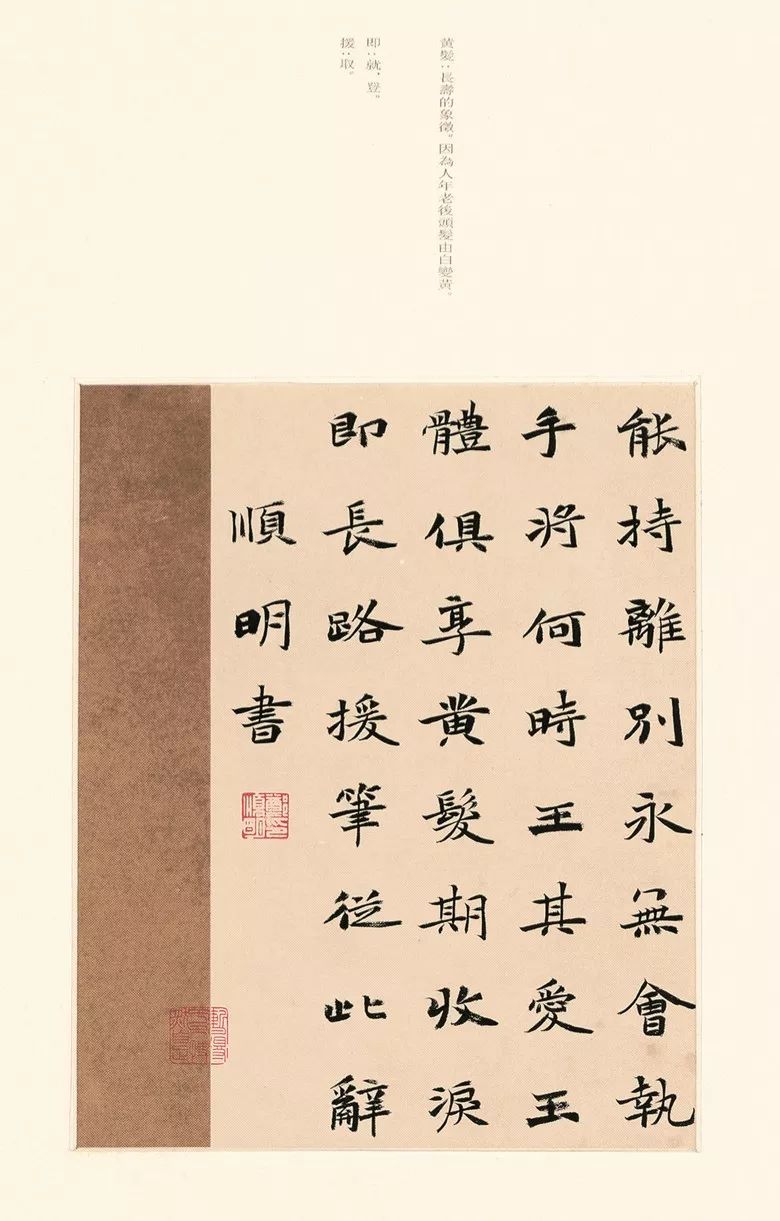 黃髮：長壽的象徵。因為人年老後頭髮由白變黃。
即：就，登。
援：取。
能持離別永無會執
手將何時王其愛玉
體俱享黄髮期收淚
即長路援筆從此辭
順明書